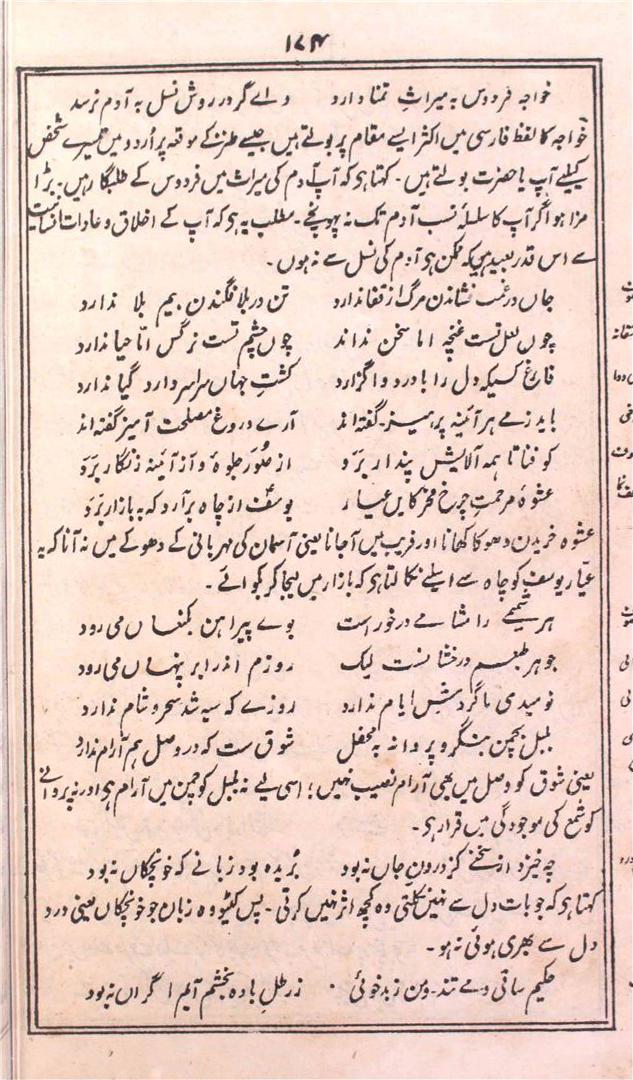 ۱۷۴
خواجہ فردوس بہ میراث تمنا دارد واے گر در روش نسل بہ آدم نرسد
خواجہ کا لفظ فارسی میں اکثر ایسے مقام پر بولتے ہیں جیسے طنز کے موقعہ پر اُردو میں تیسرے شخص
کیلیے آپ یا حضرت بولتے ہیں۔ کہتا ہی کہ آپ آدم کی میراث میں فردوس کے طلبگار ہیں۔ بڑا
مزا ہو اگر آپ کا سلسلۂ نسب آدم تک نہ پہونچے۔ مطلب یہ ہی کہ آپ کے اخلاق و عادات انسانیت
سے اس قدر بعید ہیں کہ ممکن ہی آدم کی نسل سے نہ ہوں۔
جاں در غمت فشاندن مرگ از قفا ندارد تن در بلا فگندن بیم بلا ندارد
چوں لعل تست غنچہ اما سخن نداند چوں چشم تست نرگس امّا حیا ندارد
فارغ کسیکہ دل را با درد واگزارد کشتِ جہاں سراسر دارد گیا ندارد
باید ز مے ہر آئینہ پرہیز۔ گفتہ اند آرے دروغ مصلحت آمیز گفتہ اند
کو فنا تا ہمہ آلایش پندار برَد از صُوَر جلوہ و از آئینہ زنگار برَد
عشوۂ مرحمتِ چرخ مخر کایں عیار یوسف از چاہ برآرد کہ بہ بازار برَد
عشوہ خریدن دھوکا کھانا اور فریب میں آجانا یعنی آسمان کی مہربانی کے دھوکے میں نہ آنا کہ یہ
عیّار یوسف کو چاہ سے اسلیے نکالتا ہی کہ بازار میں لیجا کر بکوائے۔
ہر شمیمے را مشامے در خورست بوے پیراہن بکنعاں می رود
جوہر طبعم درخشانست لیک روزم اندر ابر پنہاں می رود
نومیدی ما گردشِ ایام ندارد روزے کہ سیہ شد سحر و شام ندارد
بلبل بچمن بنگر و پروانہ بہ محفل شوق ست کہ در وصل ہم آرام ندارد
یعنی شوق کو وصل میں بھی آرام نصیب نہیں؛ اسی لیے نہ بلبل کو چمن میں آرام ہی اور نہ پروانے
کو شمع کی موجودگی میں قرار ہی۔
چہ خیزد از سخنے کز درونِ جاں نہ بود بُریدہ بود زبانے کہ خونچکاں نہ بود
کہتا ہی کہ جو بات دل سے نہیں نکلتی وہ کچھ اثر نہیں کرتی۔ پس کٹیو وہ زبان جو خونچکاں یعنی درد
دل سے بھری ہوئی نہ ہو۔
حکیم ساقی و مے تند۔ و من ز بدخوئی ز رطلِ بادہ بخشم آیم ار گراں نہ بود